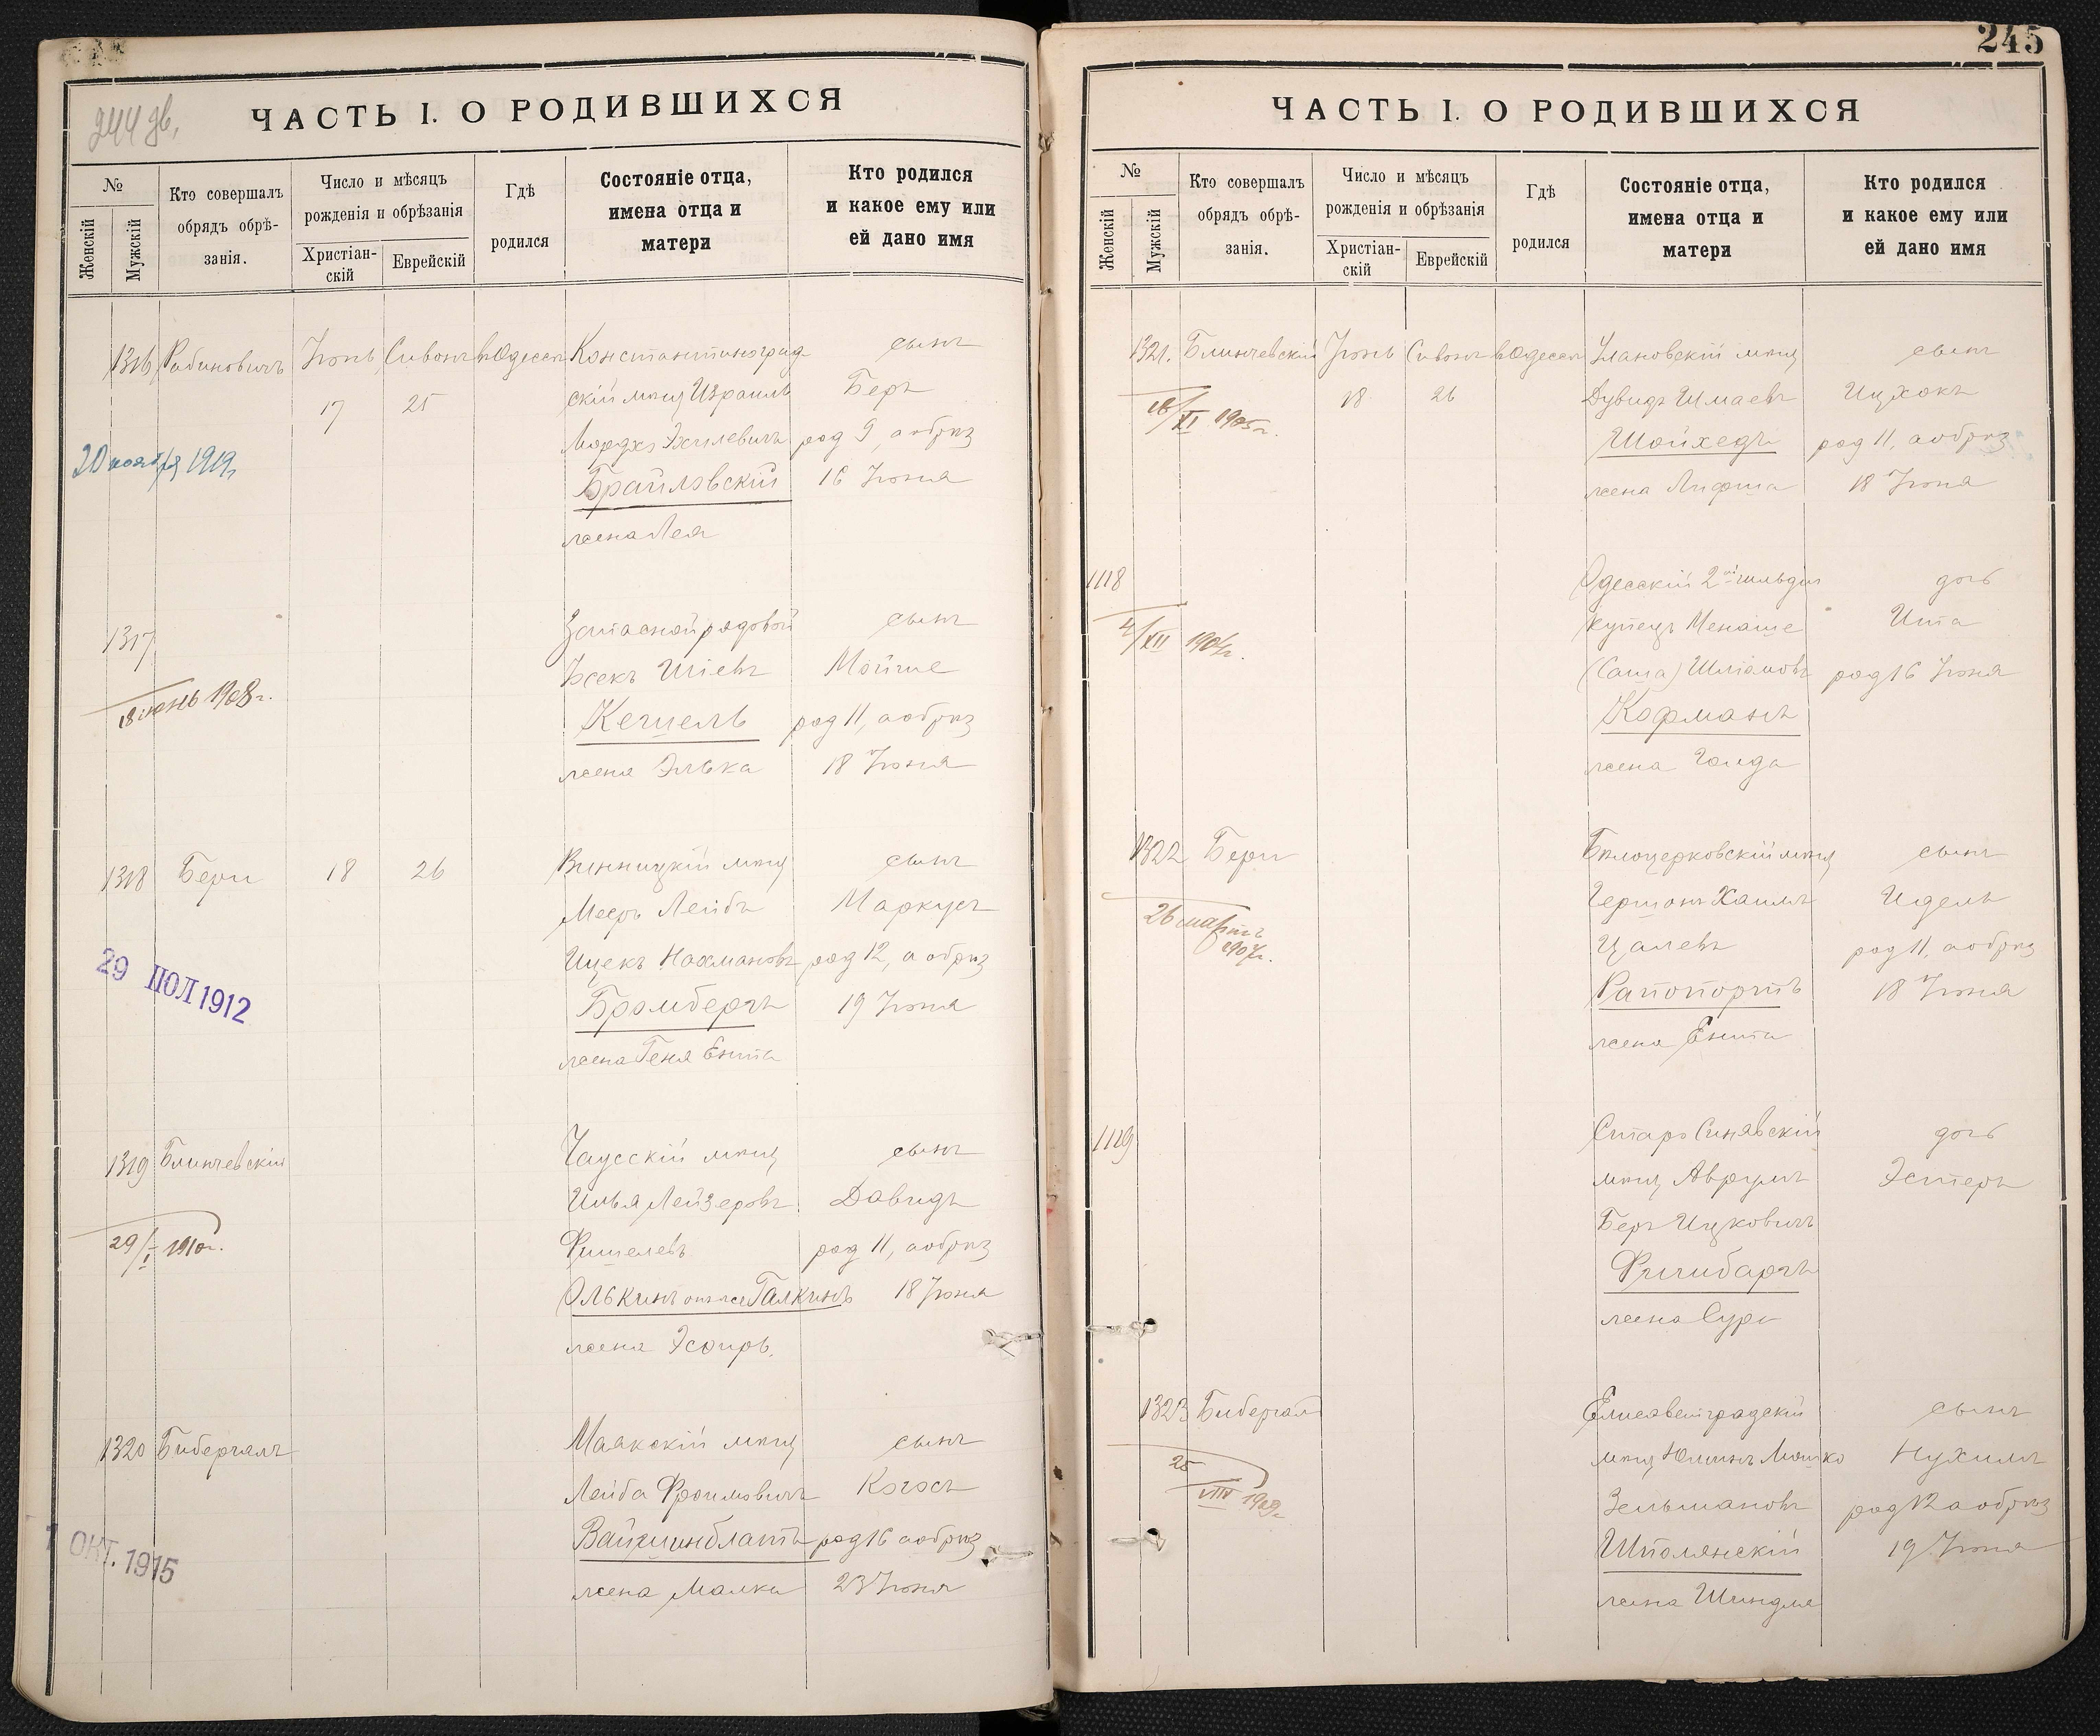 244 об.
ЧАСТЬ I. О РОДИВШИХСЯ
№
Женскій
Мужскій
Кто совершалъ
обрядъ обрѣ-
занія.
Число и мѣсяцъ
рожденія и обрѣзанія
Христіан-
скій
Еврейскій
Гдѣ
родился
Состояніе отца,
имена отца и
матери
Кто родился
и какое ему или
ей дано имя
1316 Рабиновичъ Іюнь Сивонъ въ Одессѣ Константиноград сынъ
17 25 скій мѣщ Израиль Беръ
Мордко Эхилевичъ род 9, а обрѣз
20 ноября 1919г
Браиловскій 16 Іюня
жена Лея
1317 Запасной рядовой сынъ
Исекъ Шіевъ Мойше
18 іюнь 1908г.
Кегшель род 11, а обрѣз
жена Элька 18 Іюня
1318 Бери 18 26 Винницкій мѣщ сынъ
Мееръ Лейбъ Маркусъ
29 ІЮЛ 1912
Ицекъ Нахмановъ род 12, а обрѣз
Бромбергъ 19 Іюня
жена Геня Ента
1319 Блинчевскій Чаусскій мѣщ сынъ
Илья Лейзеровъ Давидъ
29/I 1910г.
Фишелевъ род 11, а обрѣз
Олькинъ онъ же Галкинъ 18 Іюня
жена Эсфирь.
1320 Бибергалъ Маякскій мѣщ сынъ
Лейба Фроимовичъ Когосъ
1 ОКТ. 1915
Вайхшинблатъ род 16 а обрѣз
жена Малка 23 Іюня
245
ЧАСТЬ I. О РОДИВШИХСЯ
№
Женскій
Мужскій
Кто совершалъ
обрядъ обрѣ-
занія.
Число и мѣсяцъ
рожденія и обрѣзанія
Христіан-
скій
Еврейскій
Гдѣ
родился
Состояніе отца,
имена отца и
матери
Кто родился
и какое ему или
ей дано имя
1321. Блинчевскій Іюнь Сивонъ въ Одессѣ Улановскій мѣщ сынъ
18 26 Дувидъ Шмаевъ Ицхокъ
16/XI 1905г.
Шойхедъ род 11, а обрѣз
жена Лифша 18 Іюня
1118 Одесскій 2ой гильдіи дочь
купецъ Менаше Ита
4/XII 1904г.
(Саша) Шліомовъ род 16 Іюня
Корманъ
жена Голда
1322 Бери Бѣлоцерковскій мѣщ сынъ
Гершонъ Хаимъ Идель
26 мартъ
1907г.
Цалевъ род 11, а обрѣз
Рапопортъ 18 Іюня
жена Ента
1119 Старо Синявскій дочь
мѣщ Аврумъ Эстеръ
Беръ Ицковичъ
жена Сура
1323 Бибергал Елисаветградскій сынъ
мѣщ Мошко Нухимъ
25/VIII 1909г
Зельмановъ род 12 а обрѣз
Шполянскій 19 Іюня
жена Шиндля